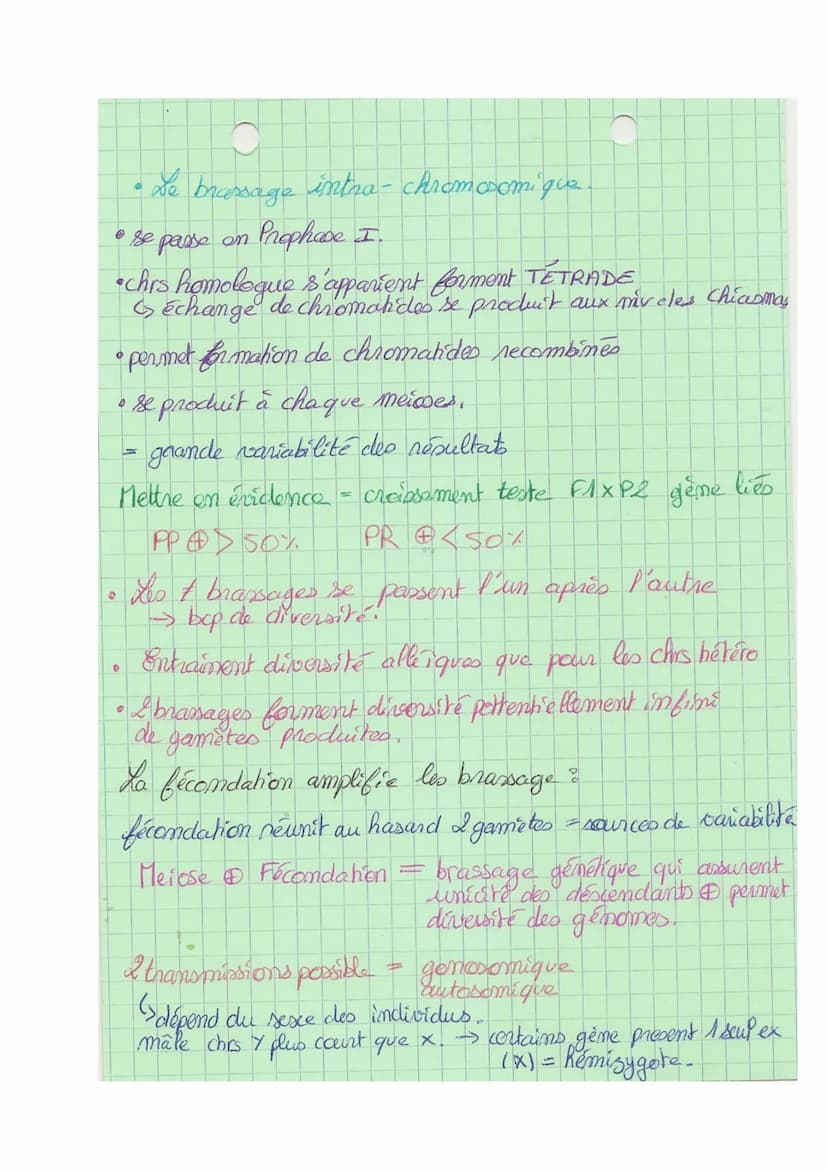 • Le brassage intra-chromosomique.
• se passe en Prophase I.
• chrs homologue s'apparient forment TÉTRADE
↳ échange de chromatides se produit aux niveles Chiasmas
• permet formation de chromatides recombinés
• se produit à chaque meioses.
= grande variabilité des résultats
Mettre en évidence = croissement teste F1xP2 gène liés
PP ⊕ > 50% PR ⊕ < 50%
• Les ≠ brassages se passent l'un après l'autre
→ bcp de diversité.
• Entrainent diversité alléiques que pour les chrs hétéro
• 2 brassages forment diversité pottentiellement infini
de gamètes produites.
La fécondation amplifie les brassage :
fécondation réunit au hasard 2 gamètes = sources de variabilité
Meiose ⊕ Fécondation = brassage génétique qui assurent
unicité des descendants ⊕ permet
diversité des génomes.
2 transmissions possible = gonosomique
autosomique
↳ dépend du sexe des individus.
mâle chrs Y plus court que X. → certains gène present 1 seul ex
(X) = Hémizygote.